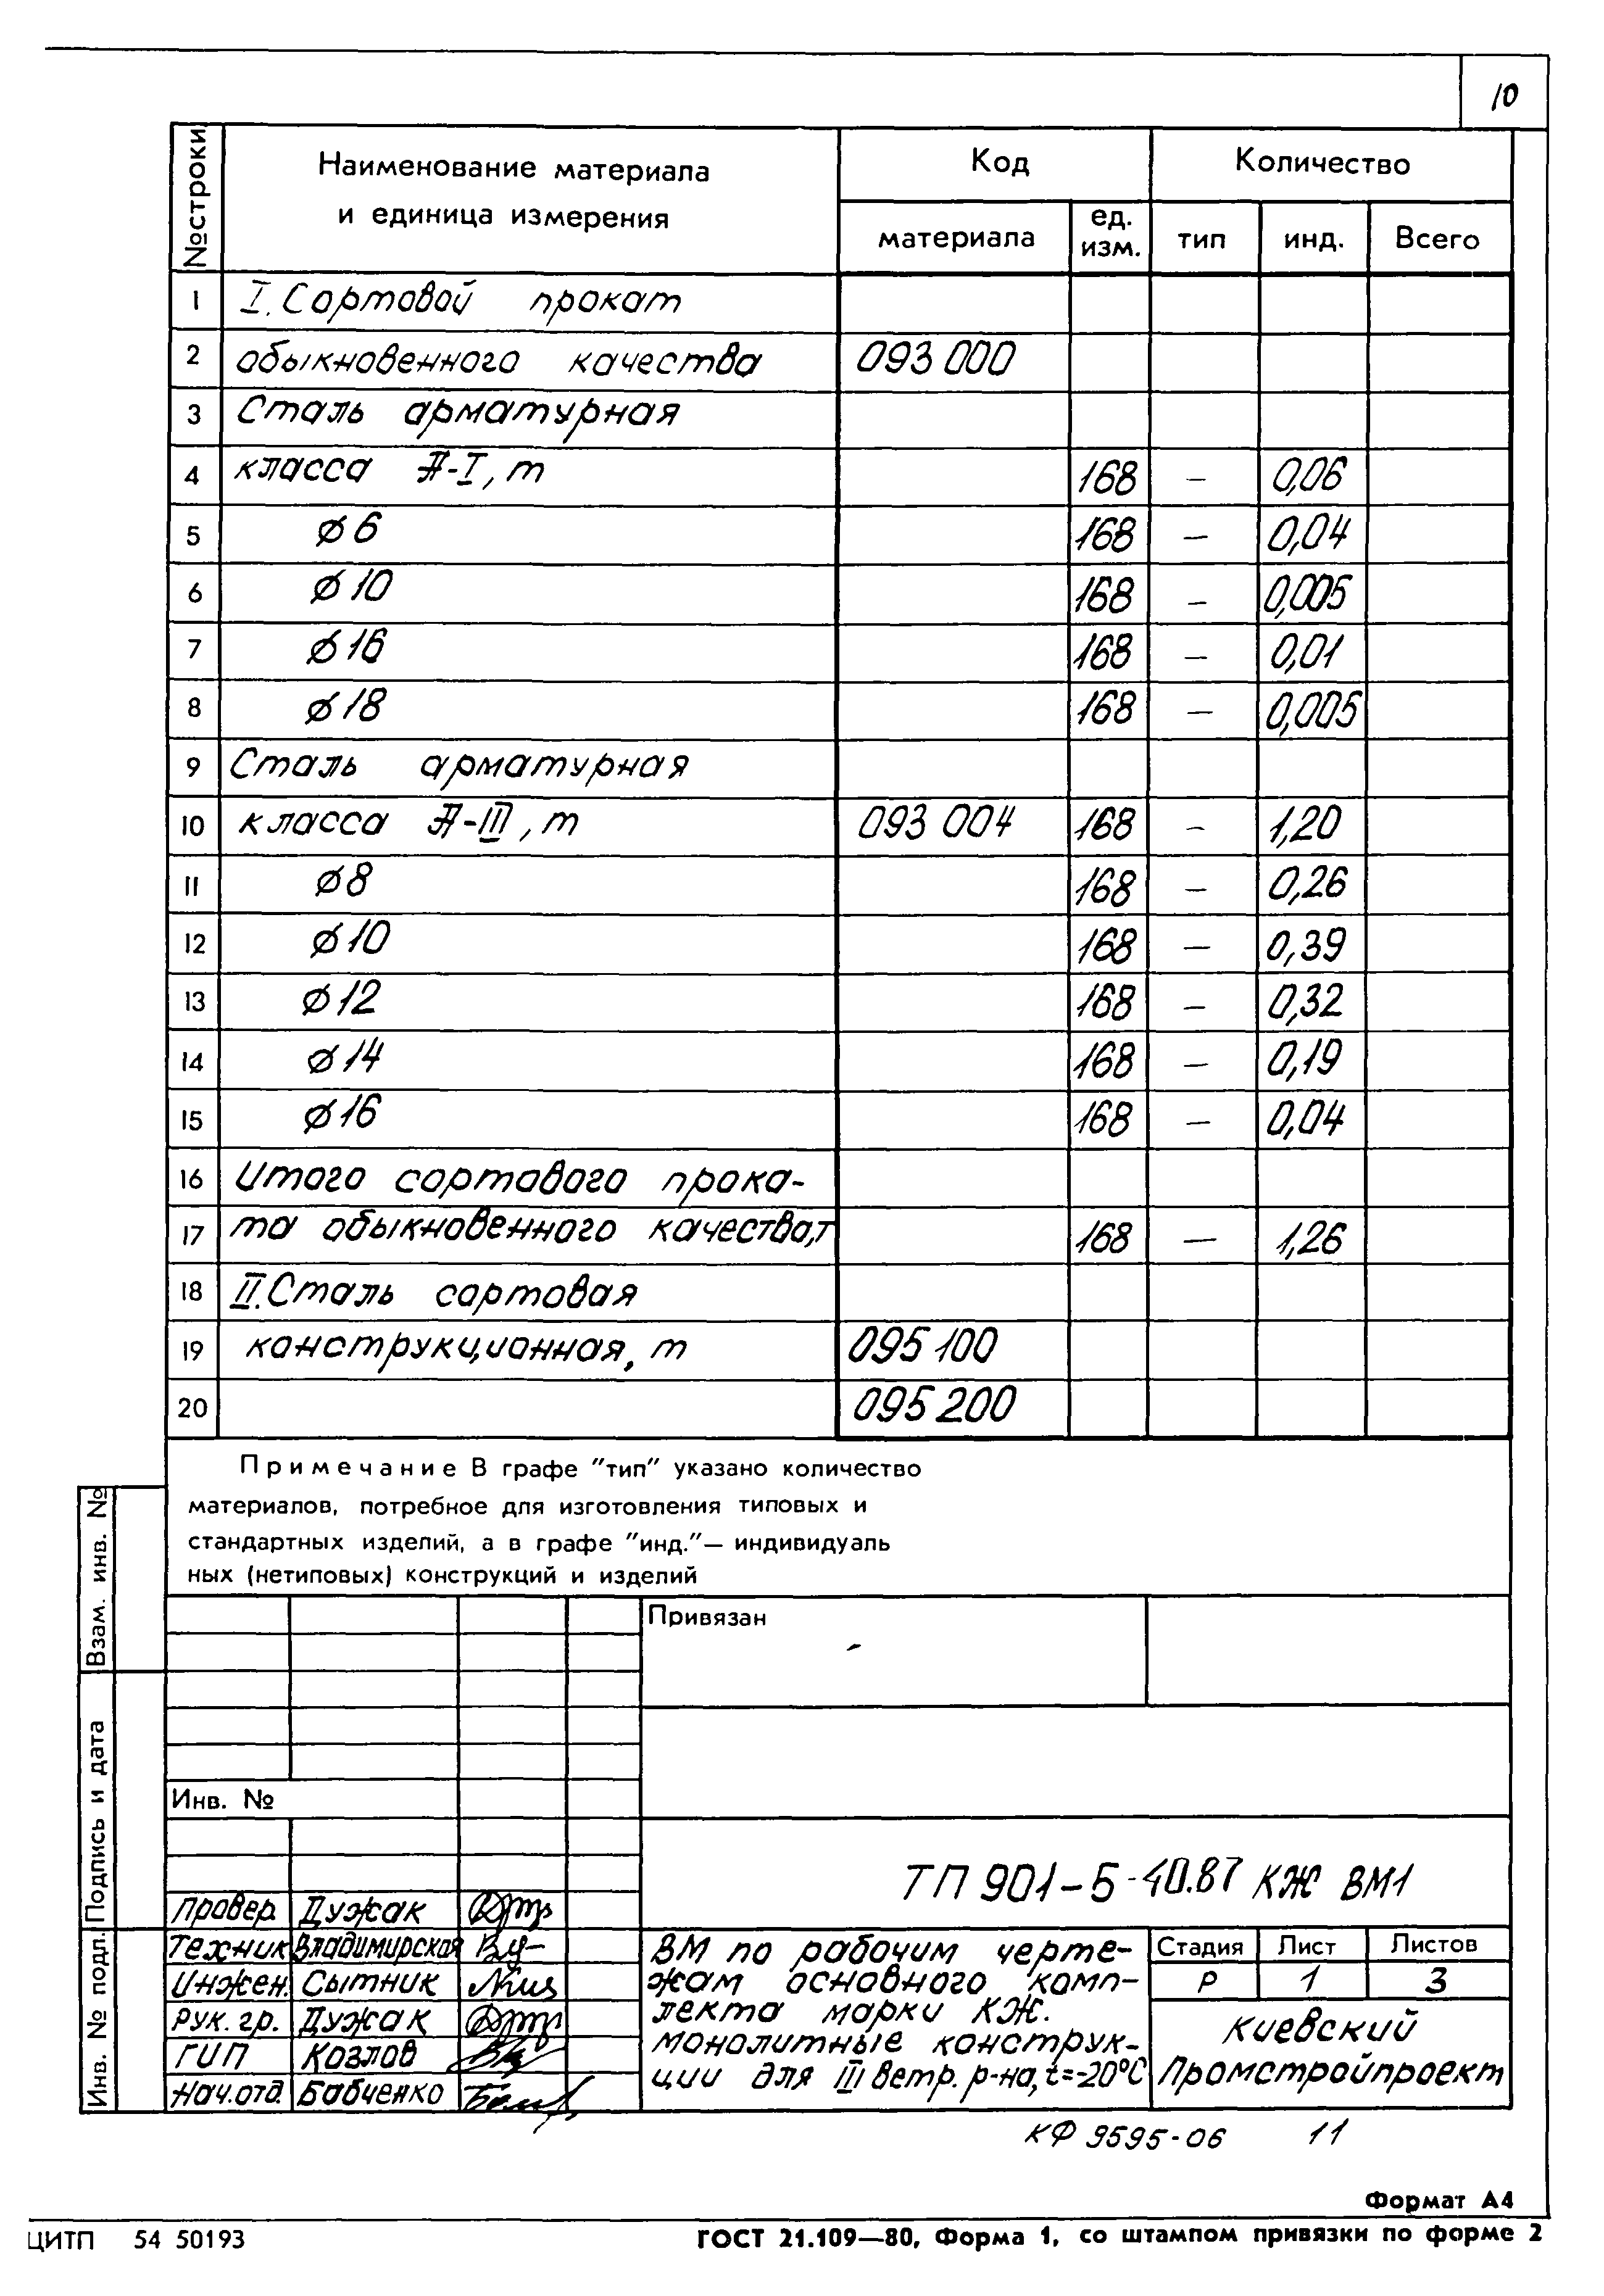 10
№ строки
Наименование материала
и единица измерения
Код
Количество
материала
ед.
изм.
тип
инд.
Всего
1 I. Сортовой прокат
2 обыкновенного качества 093 000
3 Сталь арматурная
4 класса А-I, т 168 — 0,06
5 ⌀6 168 — 0,04
6 ⌀10 168 — 0,005
7 ⌀16 168 — 0,01
8 ⌀18 168 — 0,005
9 Сталь арматурная
10 класса А-III, т 093 004 168 — 1,20
11 ⌀8 168 — 0,26
12 ⌀10 168 — 0,39
13 ⌀12 168 — 0,32
14 ⌀14 168 — 0,19
15 ⌀16 168 — 0,04
16 Итого сортового прока-
17 та обыкновенного качества,т 168 — 1,26
18 II. Сталь сортовая
19 конструкционная, т 095 100
20 095 200
Примечание В графе "тип" указано количество
материалов, потребное для изготовления типовых и
стандартных изделий, а в графе "инд."— индивидуаль
ных (нетиповых) конструкций и изделий
Взам. инв. №
Подпись и дата
Инв. № подл.
Привязан
Инв. №
ТП 901-5-40.87 КЖ ВМ1
Провер. Дужак
Техник Владимирская
Инжен. Сытник
Рук. гр. Дужак
ГИП Козлов
Нач.отд. Бабченко
ВМ по рабочим черте-
жам основного комп-
лекта марки КЖ.
монолитные конструк-
ции для III ветр. р-на, t=-20°С
Стадия Лист Листов
Р 1 3
Киевский
Промстройпроект
КФ 9595-06 11
Формат А4
ЦИТП 54 50193
ГОСТ 21.109—80, Форма 1, со штампом привязки по форме 2